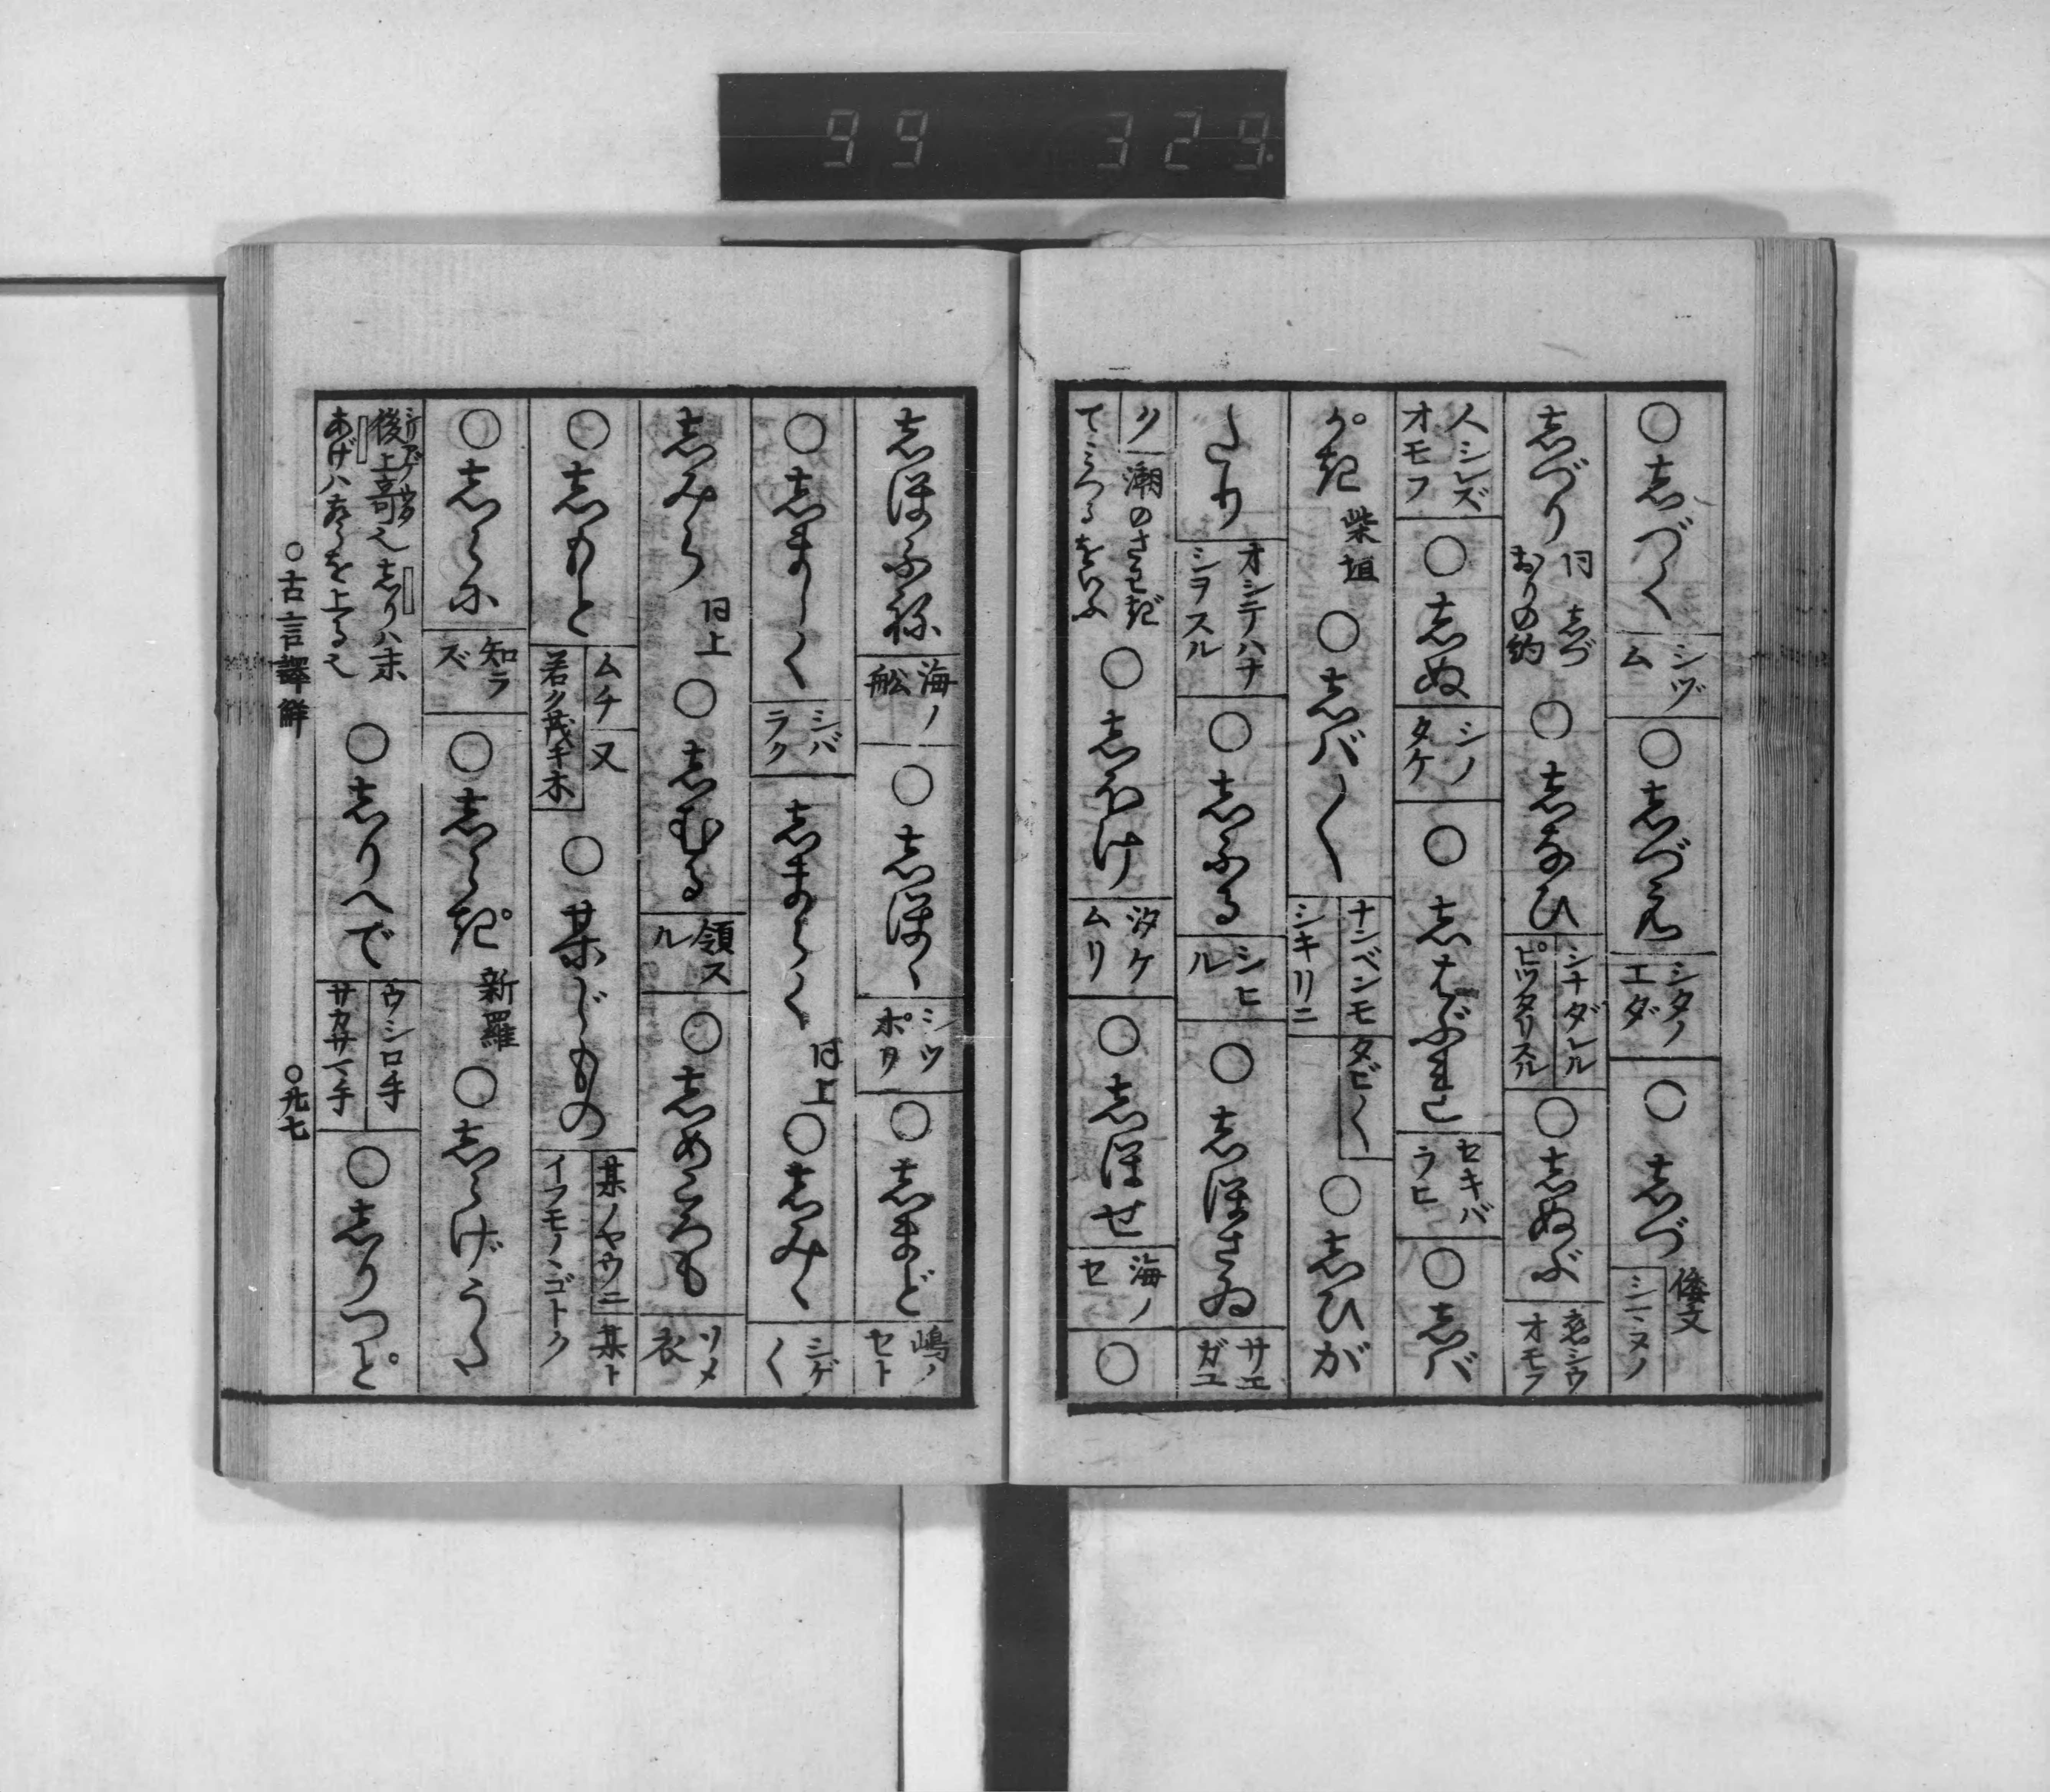 99 329
○志づく シヅム ○志づえ シタノエダ ○志づ 倭文 シヅヌノ
志づり 同 志づおりの約 ○志なひ シナダレル ピツタリスル ○志ぬぶ 恋シウオモフ
人シレズオモフ ○志ぬ シノタケ ○志はぶれ セキバラヒ ○志バ
がき 柴垣 ○志バ〱 ナンベンモ シキリニ タビ〱 ○志ひが
たり オシテハナシヲスル ○志ふる シヒル ○志ほさゐ サエガエ
ク 潮の ○志ほけ 汐ケムリ ○志ほせ 海ノセ ○
志ほふ祢 海ノ舩 ○志ほゝ シツポリ ○志まど 嶋ノセト
○志まし〱 シバラク 志まらく 同上 ○志みゝ シゲ〱
志みら 同上 ○志むる 領スル ○志めころも ソメ衣
○志もと ムチ 又 若ク茂キ木 ○某じもの 某ノヤウニ 某トイフモノヽゴトク
○志らに 知ラズ ○志らき 新羅 ○志らげうた
後上哥也志りハ末 あげハ声を上る也 ○志りへで ウシロ手 サカサマ手 ○志りつと
○古言譯解 ○九七